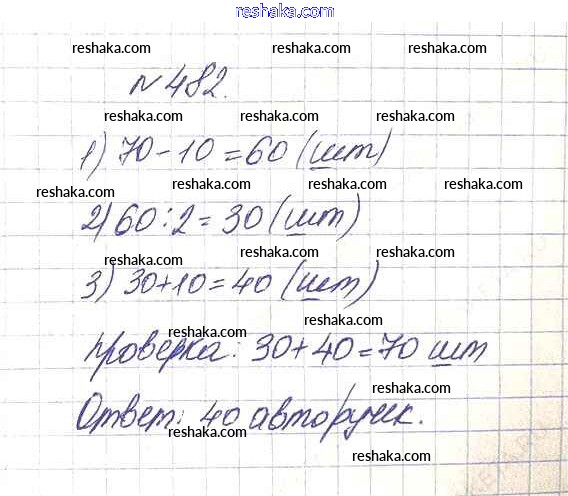 reshaka.com
reshaka.com reshaka.com
N 482.
reshaka.com reshaka.com
1) 70-10=60 (шт)
reshaka.com reshaka.com reshaka.com
2) 60:2=30 (шт)
reshaka.com reshaka.com
3) 30+10=40 (шт)
reshaka.com reshaka.com
проверка: 30+40=70 шт
reshaka.com
Ответ: 40 авторучек.
reshaka.com reshaka.com
reshaka.com